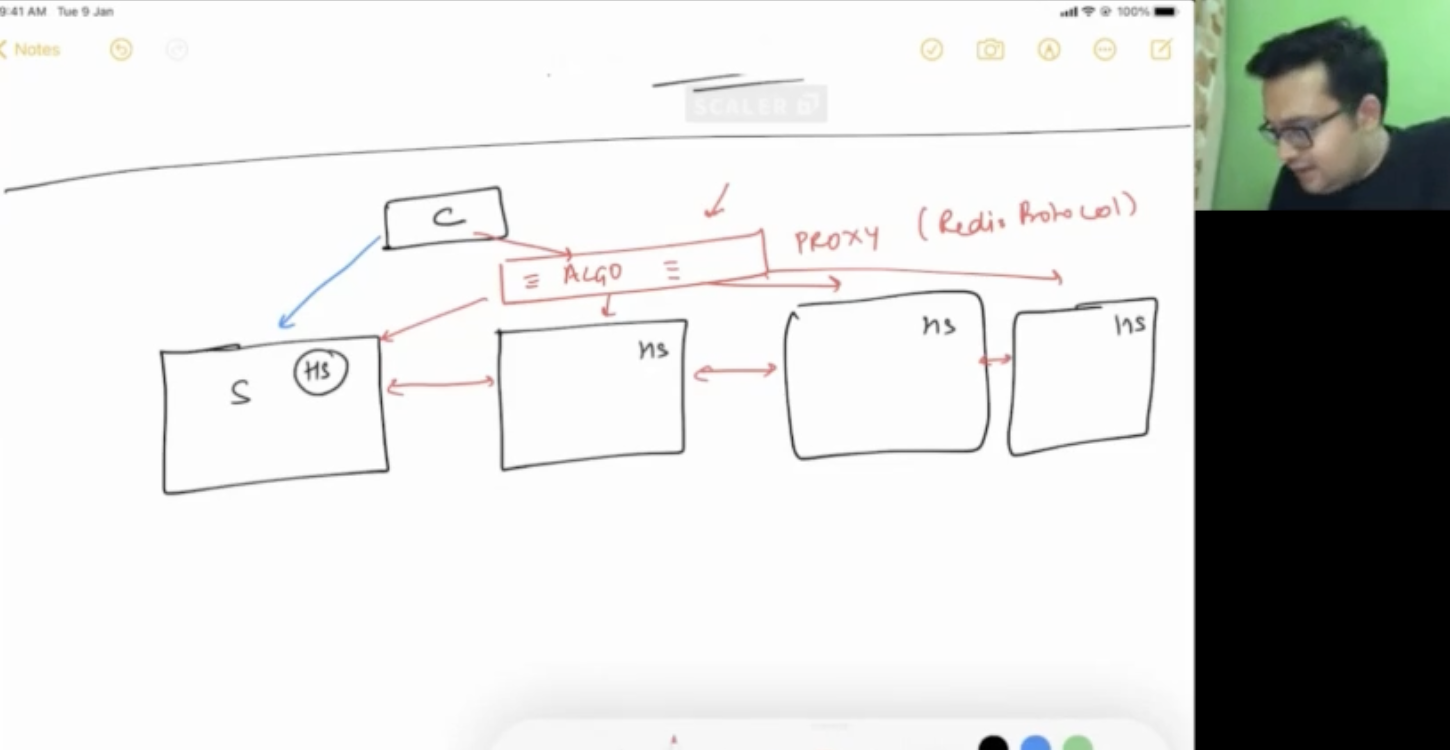 9:41 AM Tue 9 Jan
100%
Notes
SCALER
C
PROXY (Redis Protocol)
≡ ALGO ≡
S
HS
hs
hs
hs